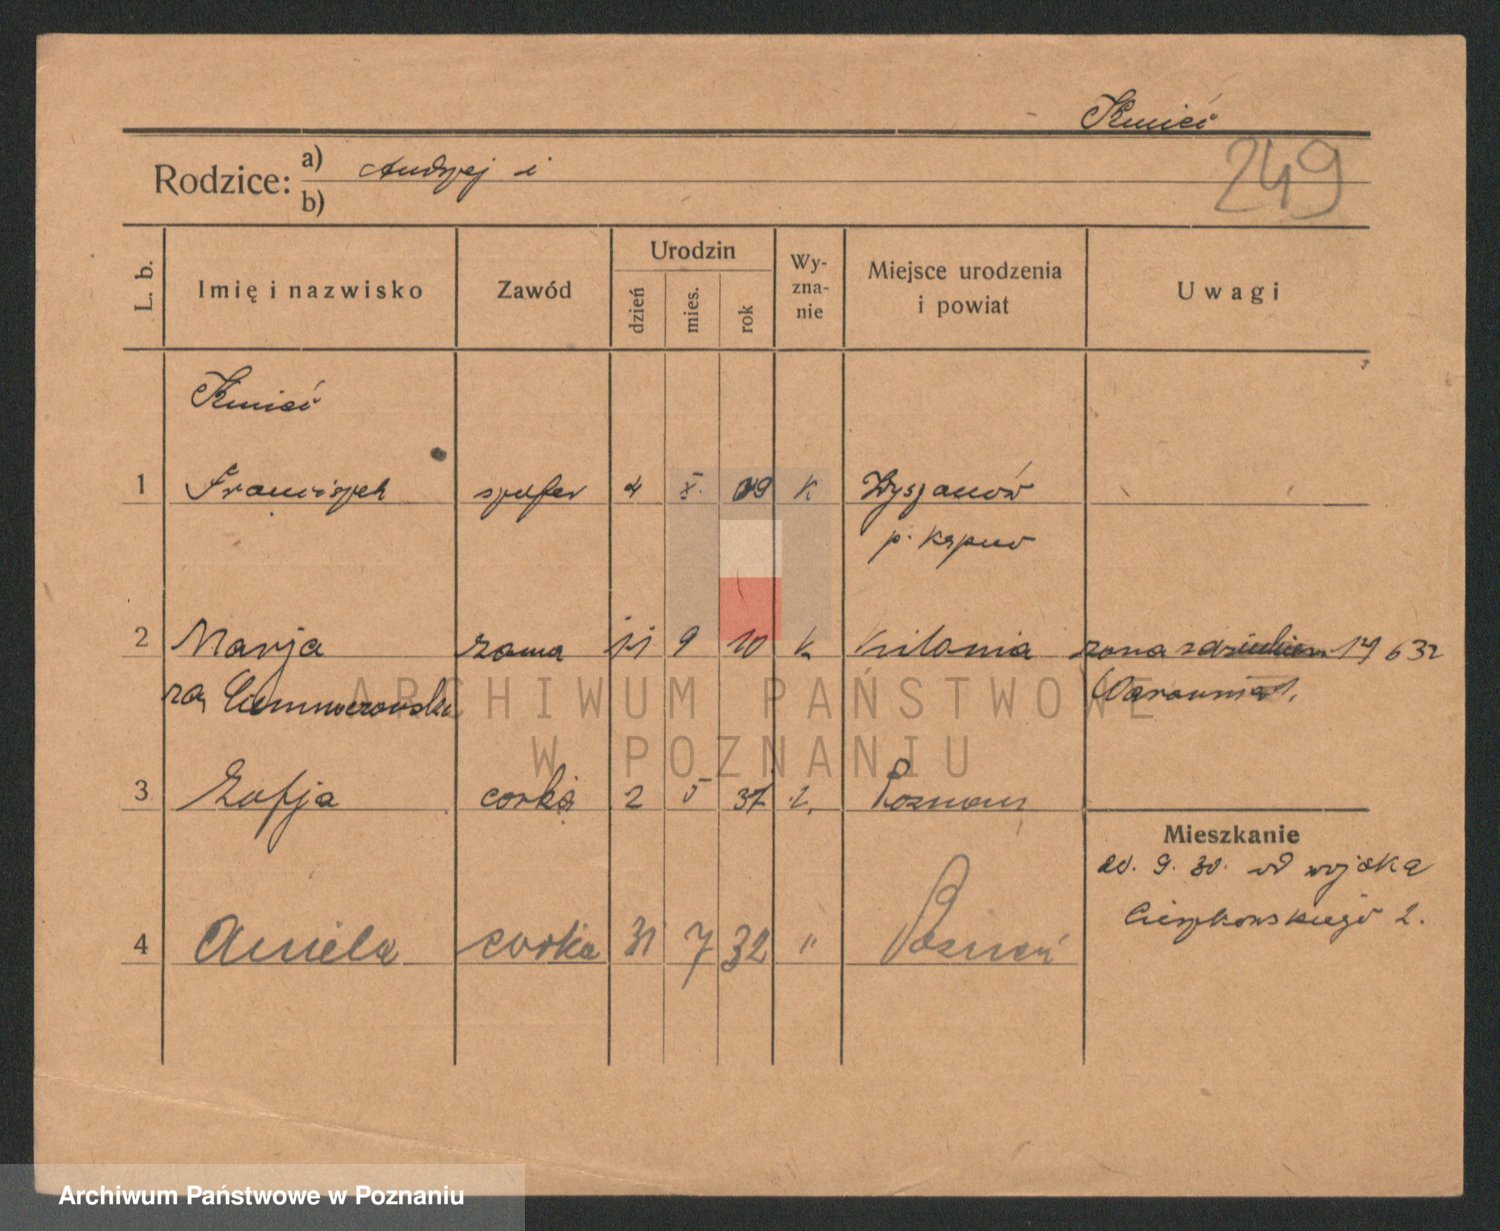 Kmieć
249
Rodzice: a) Andrzej i
b)
L. b. Imię i nazwisko Zawód Urodzin dzień mies. rok Wyznanie Miejsce urodzenia i powiat Uwagi
Kmieć
1 Franciszek szofer 4 X. 09 k Wyszanów
p. Kępno
2 Marja żona 9 10 k żona 14 6 32
za
ARCHIWUM PAŃSTWOWE
W POZNANIU
3 Zofja córka 2 5 Poznań
Mieszkanie
20. 9. 30. od wojska
Cieszkowskiego 2.
4 Aniela córka 31 7 32 " Poznań
Archiwum Państwowe w Poznaniu